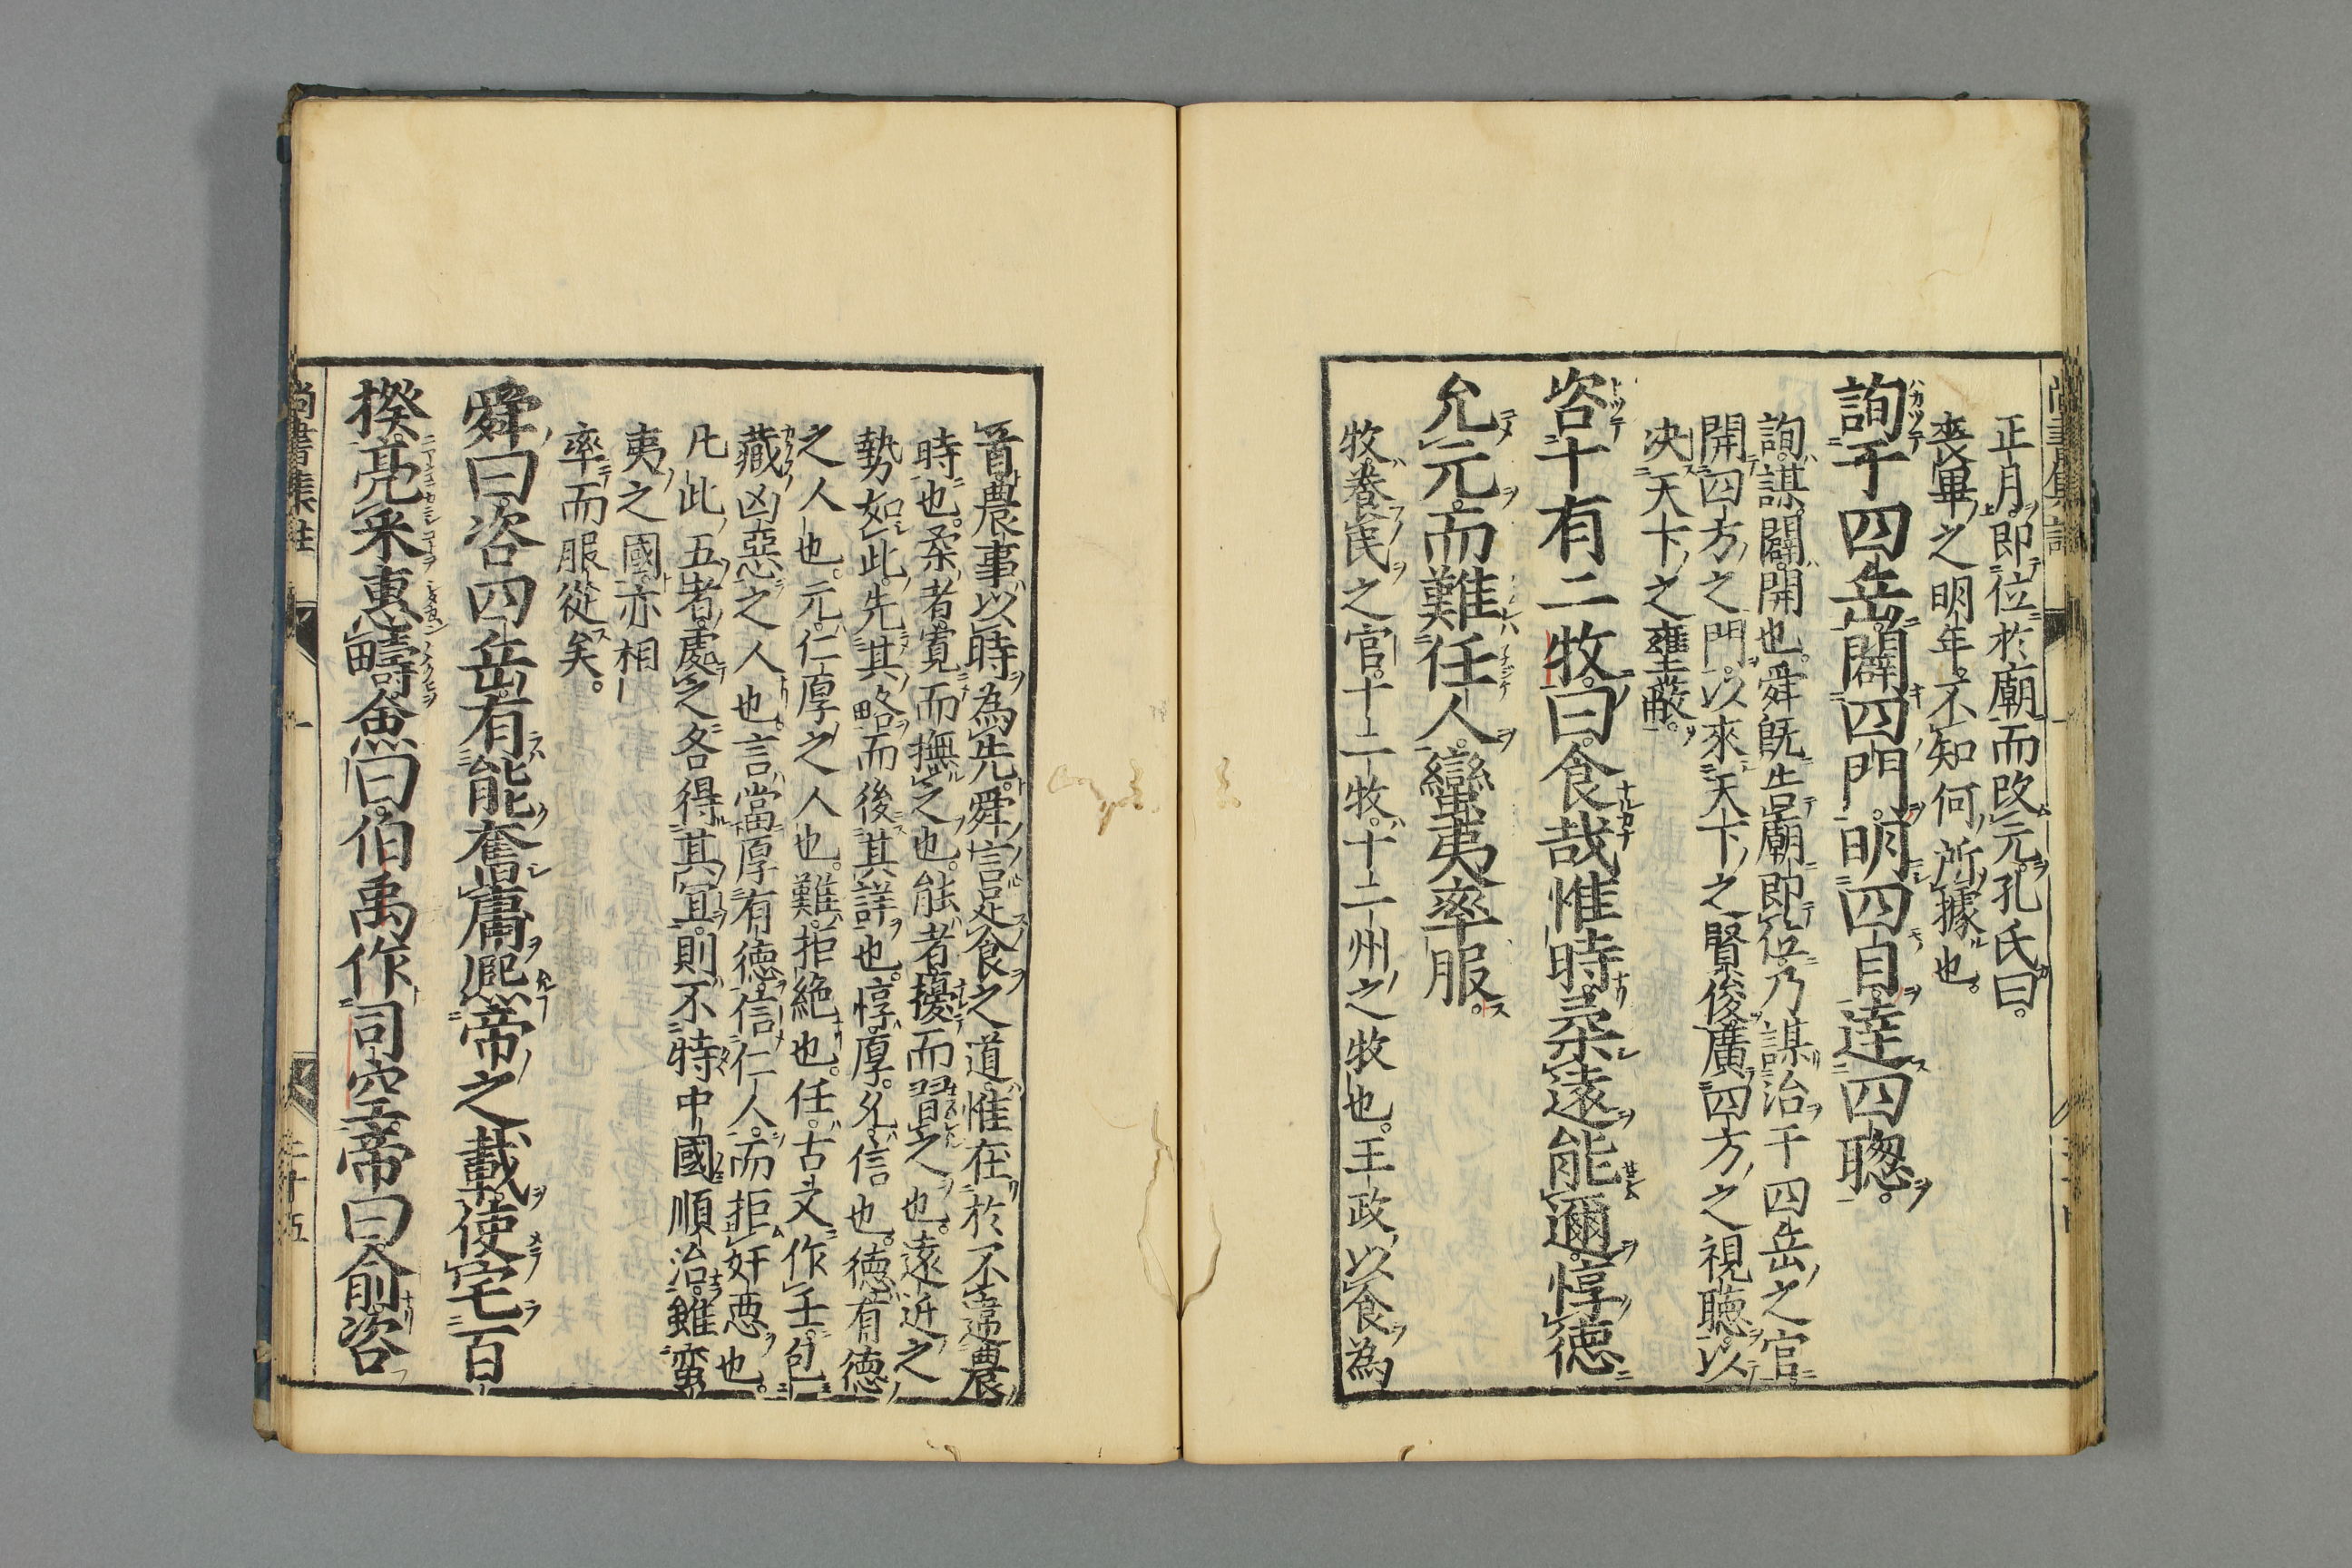 正月。即位於廟而改元。孔氏曰。
喪畢之明年。不知何所據也。
詢于四岳。闢四門。明四目。達四聰。
詢。謀。闢。開也。舜既告廟即位。乃謀治于四岳之官。
開四方之門。以來天下之賢俊。廣四方之視聽。以
决天下之壅蔽。
咨十有二牧。曰。食哉惟時。柔遠能邇。惇德
允元。而難任人。蠻夷率服。
牧。養民之官。十二牧。十二州之牧也。王政。以食為
首。農事以時為先。舜言足食之道。惟在於不違農
時也。柔者。寬而撫之也。能者。擾而習之也。遠近之
勢如此。先其略而後其詳也。惇。厚。允。信也。德。有德
之人也。元。仁厚之人也。難。拒絶也。任。古文作壬。包
藏凶惡之人也。言當厚有德。信仁人。而拒奸惡也。
凡此五者。處之各得其冝。則不特中國順治。雖蛮
夷之國。亦相
率而服從矣。
舜曰。咨四岳。有能奮庸熈帝之載。使宅百
揆。亮采惠疇。僉曰。伯禹作司空。帝曰。俞。咨
尚書集註